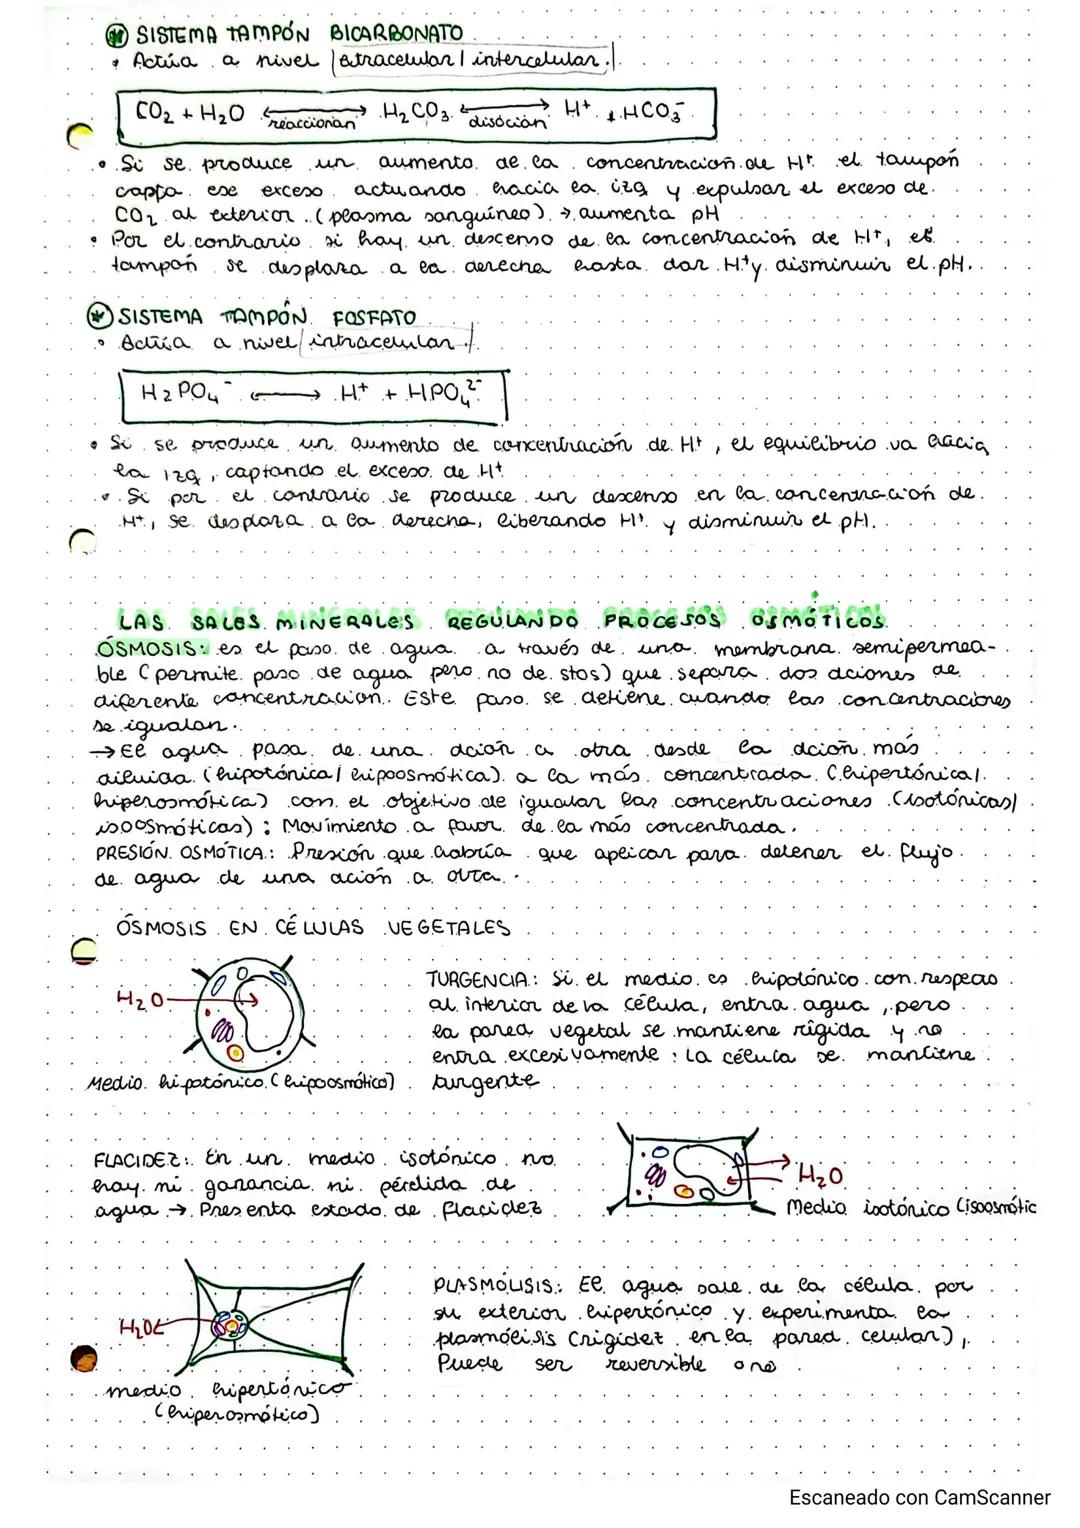 SISTEMA TAMPÓN BICARBONATO
• Actúa a nivel extracelular / intercelular.
CO₂ + H₂O ⟷ H₂CO₃ ⟷ H⁺ + HCO₃⁻
reaccionan disócian
• Si se produce un aumento de la concentración de H⁺ el tampón
capta ese exceso actuando hacia la izq y expulsar el exceso de
CO₂ al exterior (plasma sanguíneo) → aumenta pH
• Por el contrario si hay un descenso de la concentración de H⁺, el
tampón se desplaza a la derecha hasta dar H⁺ y disminuir el pH.
SISTEMA TAMPÓN FOSFATO
• Actúa a nivel intracelular.
H₂PO₄⁻ ⟷ H⁺ + HPO₄²⁻
• Si se produce un aumento de concentración de H⁺, el equilibrio va hacia
la izq, captando el exceso de H⁺
• Si por el contrario se produce un descenso en la concentración de
H⁺, se desplaza a la derecha, liberando H⁺ y disminuir el pH.
LAS SALES MINERALES REGULANDO PROCESOS OSMÓTICOS
ÓSMOSIS: es el paso de agua a través de una membrana semipermea-
ble (permite paso de agua pero no de stos) que separa dos dciones de
diferente concentración. Este paso se detiene cuando las concentraciones
se igualan.
→ El agua pasa de una dción a otra desde la dción más
diluida (hipotónica / hipoosmótica) a la más concentrada (hipertónica/
hiperosmótica) con el objetivo de igualar las concentraciones (isotónicas/
isoosmóticas): Movimiento a favor de la más concentrada.
PRESIÓN OSMÓTICA: Presión que habría que aplicar para detener el flujo
de agua de una ación a otra.
ÓSMOSIS EN CÉLULAS VEGETALES
H₂O
Medio hipotónico (hipoosmótico)
TURGENCIA: Si el medio es hipotónico con respecto
al interior de la célula, entra agua, pero
la pared vegetal se mantiene rígida y no
entra excesivamente: La célula se mantiene
turgente
FLACIDEZ: En un medio isotónico no
hay ni ganancia ni pérdida de
agua → Presenta estado de flacidez
H₂O
Medio isotónico (isoosmótic
H₂O
medio hipertónico
(hiperosmótico)
PLASMÓLISIS: El agua sale de la célula por
su exterior hipertónico y experimenta la
plasmólisis (rigidez en la pared celular),
Puede ser reversible o no
Escaneado con CamScanner